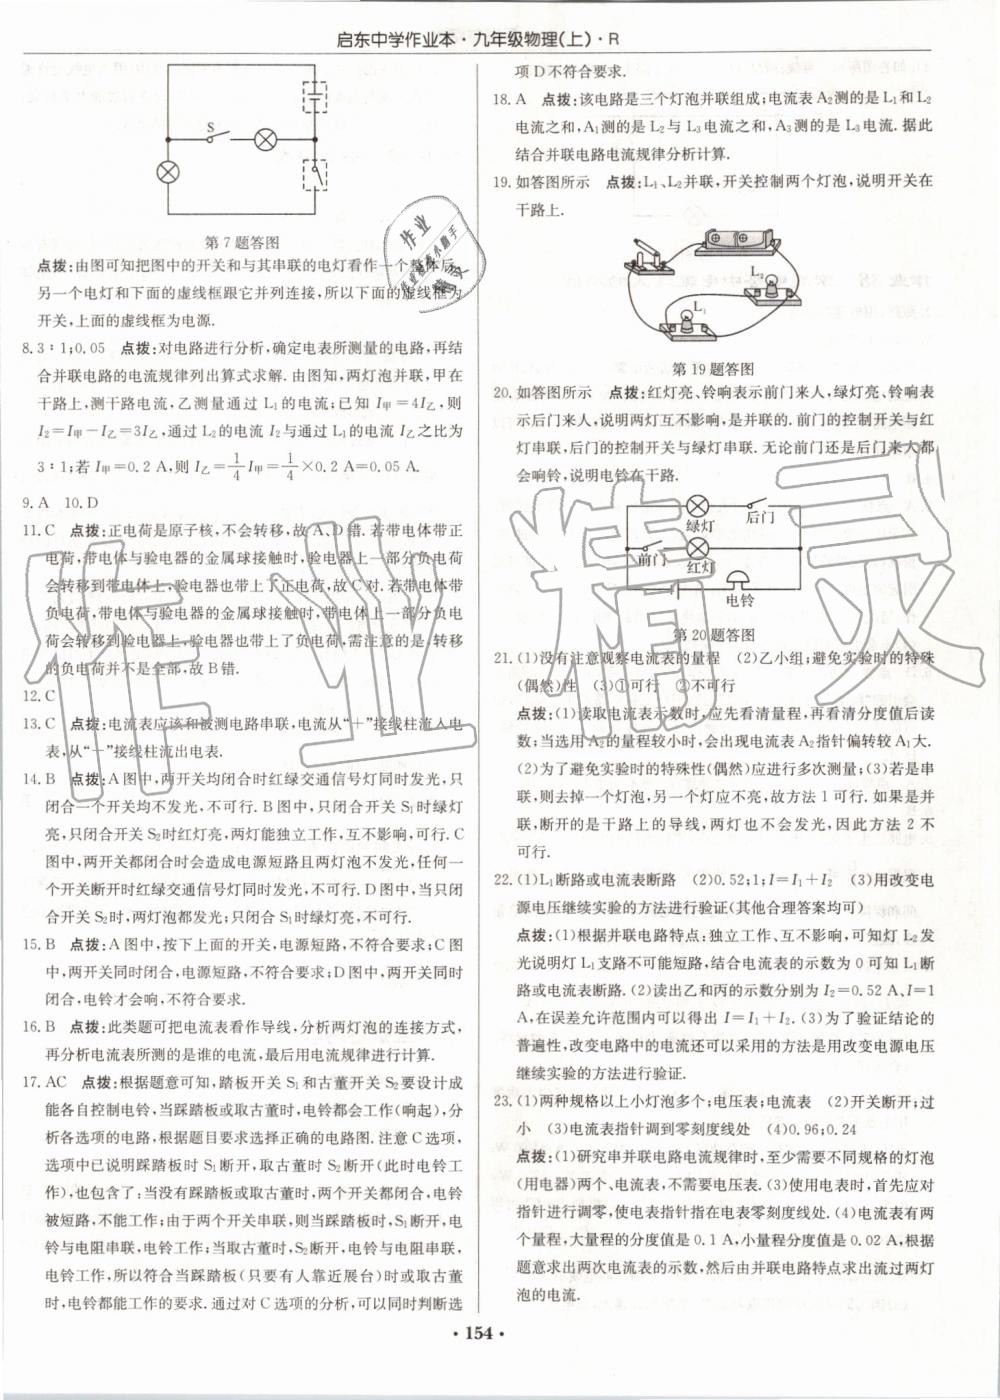 启东中学作业本·九年级物理(上)·R
S
第7题答图
点拨:由图可知把图中的开关和与其串联的电灯看作一个整体后,
另一个电灯和下面的虚线框跟它并列连接,所以下面的虚线框为
开关,上面的虚线框为电源.
8.3∶1;0.05 点拨:对电路进行分析,确定电表所测量的电路,再结
合并联电路的电流规律列出算式求解.由图知,两灯泡并联,甲在
干路上,测干路电流,乙测量通过L₁的电流;已知I甲=4I乙,则
I₂=I甲-I乙=3I乙,通过L₂的电流I₂与通过L₁的电流I乙之比为
3∶1;若I甲=0.2 A,则I乙=1/4 I甲=1/4×0.2 A=0.05 A.
9.A 10.D
11.C 点拨:正电荷是原子核,不会转移,故A、D错.若带电体带正
电荷,带电体与验电器的金属球接触时,验电器上一部分负电荷
会转移到带电体上,验电器也带上了正电荷,故C对.若带电体带
负电荷,带电体与验电器的金属球接触时,带电体上一部分负电
荷会转移到验电器上,验电器也带上了负电荷,需注意的是,转移
的负电荷并不是全部,故B错.
12.C
13.C 点拨:电流表应该和被测电路串联,电流从“+”接线柱流入电
表,从“-”接线柱流出电表.
14.B 点拨:A图中,两开关均闭合时红绿交通信号灯同时发光,只
闭合一个开关均不发光,不可行.B图中,只闭合开关S₁时绿灯
亮,只闭合开关S₂时红灯亮,两灯能独立工作,互不影响,可行.C
图中,两开关都闭合时会造成电源短路且两灯泡不发光,任何一
个开关断开时红绿交通信号灯同时发光,不可行.D图中,当只闭
合开关S₂时,两灯泡都发光;只闭合S₁时绿灯亮,不可行.
15.B 点拨:A图中,按下上面的开关,电源短路,不符合要求;C图
中,两开关同时闭合,电源短路,不符合要求;D图中,两开关同时
闭合,电铃才会响,不符合要求.
16.B 点拨:此类题可把电流表看作导线,分析两灯泡的连接方式,
再分析电流表所测的是谁的电流,最后用电流规律进行计算.
17.AC 点拨:根据题意可知,踏板开关S₁和古董开关S₂要设计成
能各自控制电铃,当踩踏板或取古董时,电铃都会工作(响起),分
析各选项的电路,根据题目要求选择正确的电路图.注意C选项,
选项中已说明踩踏板时S₁断开,取古董时S₂断开(此时电铃工
作),也包含了:当没有踩踏板或取古董时,两个开关都闭合,电铃
被短路,不能工作;由于两个开关串联,则当踩踏板时,S₁断开,电
铃与电阻串联,电铃工作;当取古董时,S₂断开,电铃与电阻串联,
电铃工作,所以符合当踩踏板(只要有人靠近展台)时或取古董
时,电铃都能工作的要求.通过对C选项的分析,可以同时判断选
项D不符合要求.
18.A 点拨:该电路是三个灯泡并联组成;电流表A₂测的是L₁和L₂
电流之和,A₁测的是L₂与L₃电流之和,A₃测的是L₃电流.据此
结合并联电路电流规律分析计算.
19.如答图所示 点拨:L₁、L₂并联,开关控制两个灯泡,说明开关在
干路上.
L₂
L₁
第19题答图
20.如答图所示 点拨:红灯亮、铃响表示前门来人,绿灯亮、铃响表
示后门来人,说明两灯互不影响,是并联的.前门的控制开关与红
灯串联,后门的控制开关与绿灯串联.无论前门还是后门来人都
会响铃,说明电铃在干路.
绿灯 后门
前门 红灯
电铃
第20题答图
21.(1)没有注意观察电流表的量程 (2)乙小组;避免实验时的特殊
(偶然)性 (3)①可行 ②不可行
点拨:(1)读取电流表示数时,应先看清量程,再看清分度值后读
数;当选用A₂的量程较小时,会出现电流表A₂指针偏转较A₁大.
(2)为了避免实验时的特殊性(偶然)应进行多次测量;(3)若是串
联,则去掉一个灯泡,另一个灯应不亮,故方法1可行.如果是并
联,断开的是干路上的导线,两灯也不会发光,因此方法2不
可行.
22.(1)L₁断路或电流表断路 (2)0.52;1;I=I₁+I₂ (3)用改变电
源电压继续实验的方法进行验证(其他合理答案均可)
点拨:(1)根据并联电路特点:独立工作、互不影响,可知灯L₂发
光说明灯L₁支路不可能短路,结合电流表的示数为0可知L₁断
路或电流表断路.(2)读出乙和丙的示数分别为I₂=0.52 A、I=1
A,在误差允许范围内可以得出I=I₁+I₂.(3)为了验证结论的
普遍性,改变电路中的电流还可以采用的方法是用改变电源电压
继续实验的方法进行验证.
23.(1)两种规格以上小灯泡多个;电压表;电流表 (2)开关断开;过
小 (3)电流表指针调到零刻度线处 (4)0.96;0.24
点拨:(1)研究串并联电路电流规律时,至少需要不同规格的灯泡
(用电器)两个、电流表,不需要电压表.(3)使用电表时,首先应对
指针进行调零,使电表指针指在电表零刻度线处.(4)电流表有两
个量程,大量程的分度值是0.1 A,小量程分度值是0.02 A,根据
题意求出两次电流表的示数,然后由并联电路特点求出流过两灯
泡的电流.
·154·
作业精灵